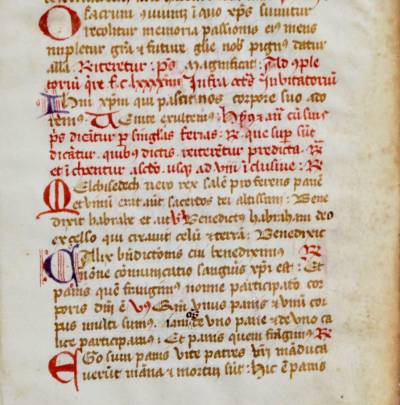 O sacrum conuiuiu i quo xps sumitur
recolitur memoria passionis ei mens
impletur gra et future glie nob pignus datur
alla. Reiteretur. ps. Magnificat. Ad
Infra Inuitatoriu
xpm qui pascit nos corpore suo ado
remus. Uenite exultemus.
ps dicatur p singlas ferias. R. que sup sut
dicatur. quibus dictis reiteretur predicta. R.
et i usq ad inclusiue. R.
Melchisedech uero rex sale proferens pane
et uinu erat aut sacerdos dei altissimi. Bene
dixit habrahe et ait. V. Benedictus habraham deo
excelso qui creauit celu et terra. Benedixit
Calix bndictionis cui benedicimus R.
nione comunicatio sanguis xpi est. Et
panis que frangimus nonne participatio cor
poris dni e. V. Qm unus panis et unu cor
pus multi sumus. de uno pane et de uno ca
lice participamus. Et panis quem frangimus R.
Ego sum panis uite patres uri manduca
uerunt manna et mortui sut. Hic e panis